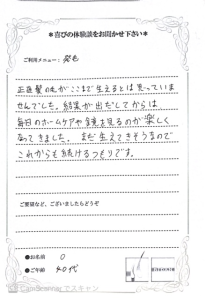 ＊喜びの体験談をお聞かせ下さい＊
ご利用メニュー：発毛
正直髪の毛がここまで生えるとは思っていま
せんでした。結果が出だしてからは
毎日のホームケアや鏡を見るのが楽しく
なってきました。まだ生えてきそうなので
これからも続けるつもりです。
ご要望など、ございましたらどうぞ
●お名前 O
●ご年齢 40代
CamScannerでスキャン